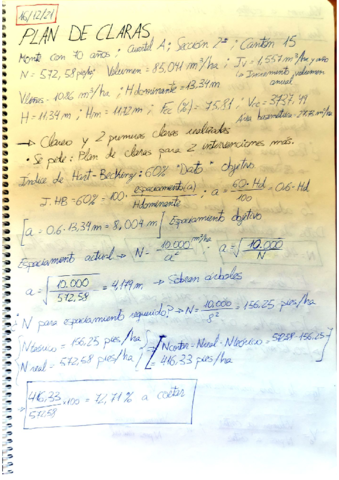 16/12/21
PLAN DE CLARAS
Monte con 70 años ; Cuartel A ; Sección 2ª ; Cantón 15
N = 572,58 pies/ha ; Volumen = 85,041 m³/ha ; Iv = 1,557 m³/ha y año
↳ Incremento volumen anual
Vleñas = 10.16 m³/ha ; H dominante = 13.34m
H = 11,34m ; Hm = 11,32m ; Fcc (%) = 75.81 ; Vcc = 3737,49
→ Clareo y 2 primeras claras realizadas
• Se pide: Plan de claras para 2 intervenciones más.
Índice de Hart-Becking: 60% "Dato" objetivo
I.HB = 60% = 100 · espaciamiento(a) / Hdominante ; a = 60·Hd / 100 = 0.6·Hd
[a = 0.6·13,34m = 8,004m] Espaciamiento objetivo
Espaciamiento actual → N = 10.000 m²/ha / a² ; a = √10.000 / N
a = √10.000 / 572,58 = 4,179m → Sobran árboles
• ¿N para espaciamiento requerido? → N = 10.000 / 8² = 156.25 pies/ha
N teórico = 156.25 pies/ha
N real = 572,58 pies/ha
N cortar = N real - N teórico = 572,58 - 156.25
= 416,33 pies/ha
→ 416,33 / 572,58 · 100 = 72,71 % a cortar